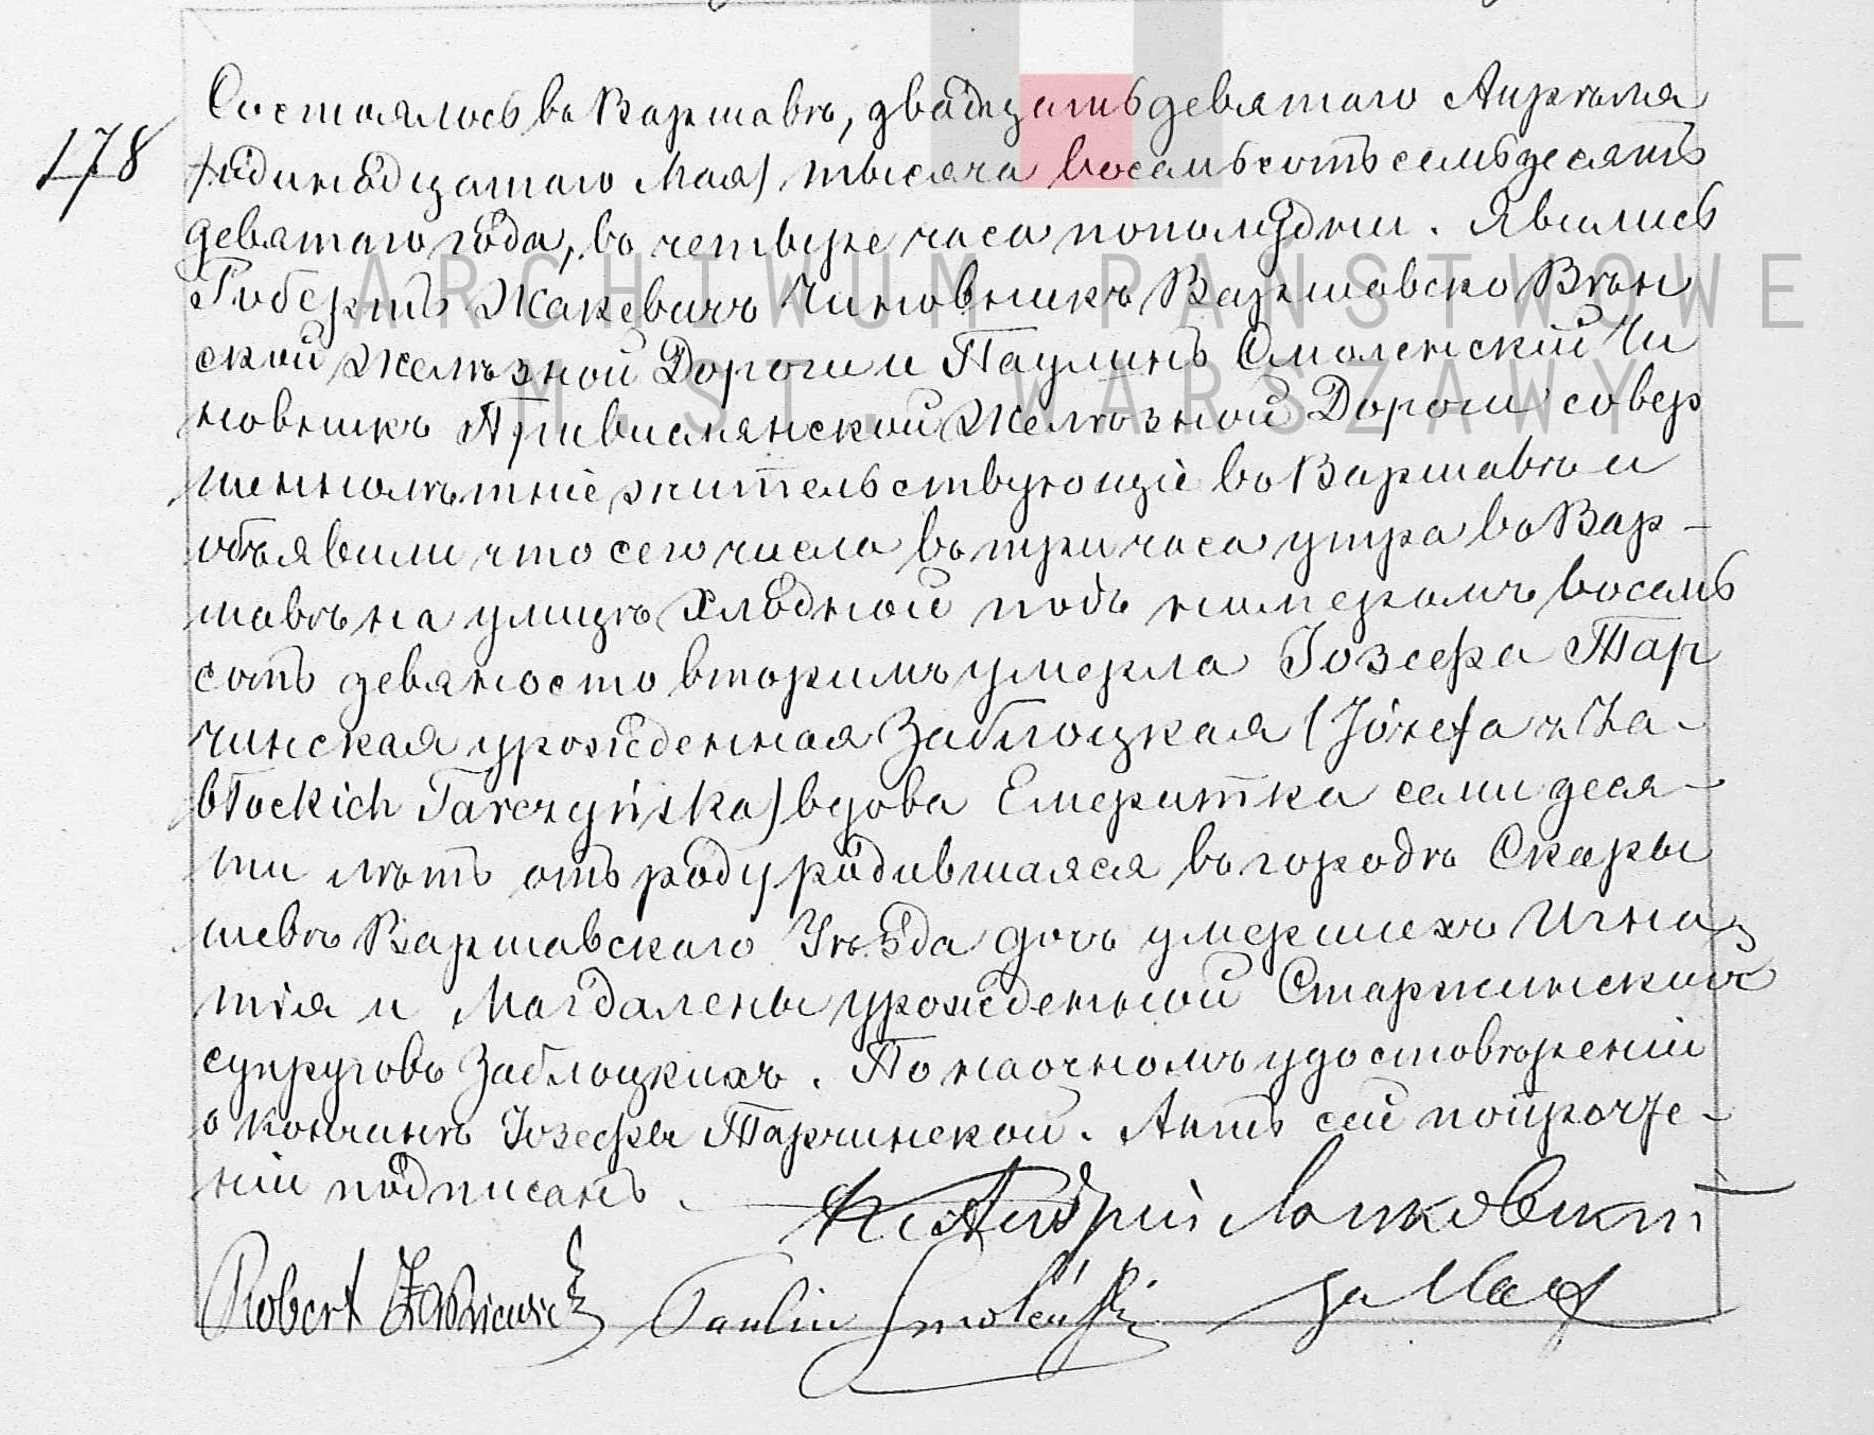 178
Состоялось въ Варшавѣ, двадцать девятаго Апрѣля
/одинадцатаго Мая/ тысяча восемьсотъ семьдесятъ
девятаго года, въ четыре часа пополудни. Явились
Робертъ Жакевичъ Чиновникъ Варшавско Вѣн
ской Желѣзной Дороги и Паулинъ Смоленскій Чи
новникъ Привислянской Желѣзной Дороги совер
шеннолѣтніе жительствующіе въ Варшавѣ и
объявили что сего числа въ три часа утра въ Вар-
шавѣ на улицѣ Хлодной подъ номеромъ восемь
сотъ девяносто вторымъ умерла Іозефа Тар
чинская урожденная Заблоцкая (Józefa z Za-
błockich Tarczyńska) вдова Емеритка семидеся-
ти лѣтъ отъ роду родившаяся въ городѣ Скары
шевѣ Варшавскаго Уѣзда дочь умершихъ Игна
тія и Магдалены урожденной
супруговъ Заблоцкихъ. По наочномъ удостовѣреніи
о кончинѣ Іозефы Тарчинской. Актъ сей по прочте-
ніи подписанъ.
Robert Żakiewicz Paulin Smoleński
ARCHIWUM PAŃSTWOWE
M.ST. WARSZAWY